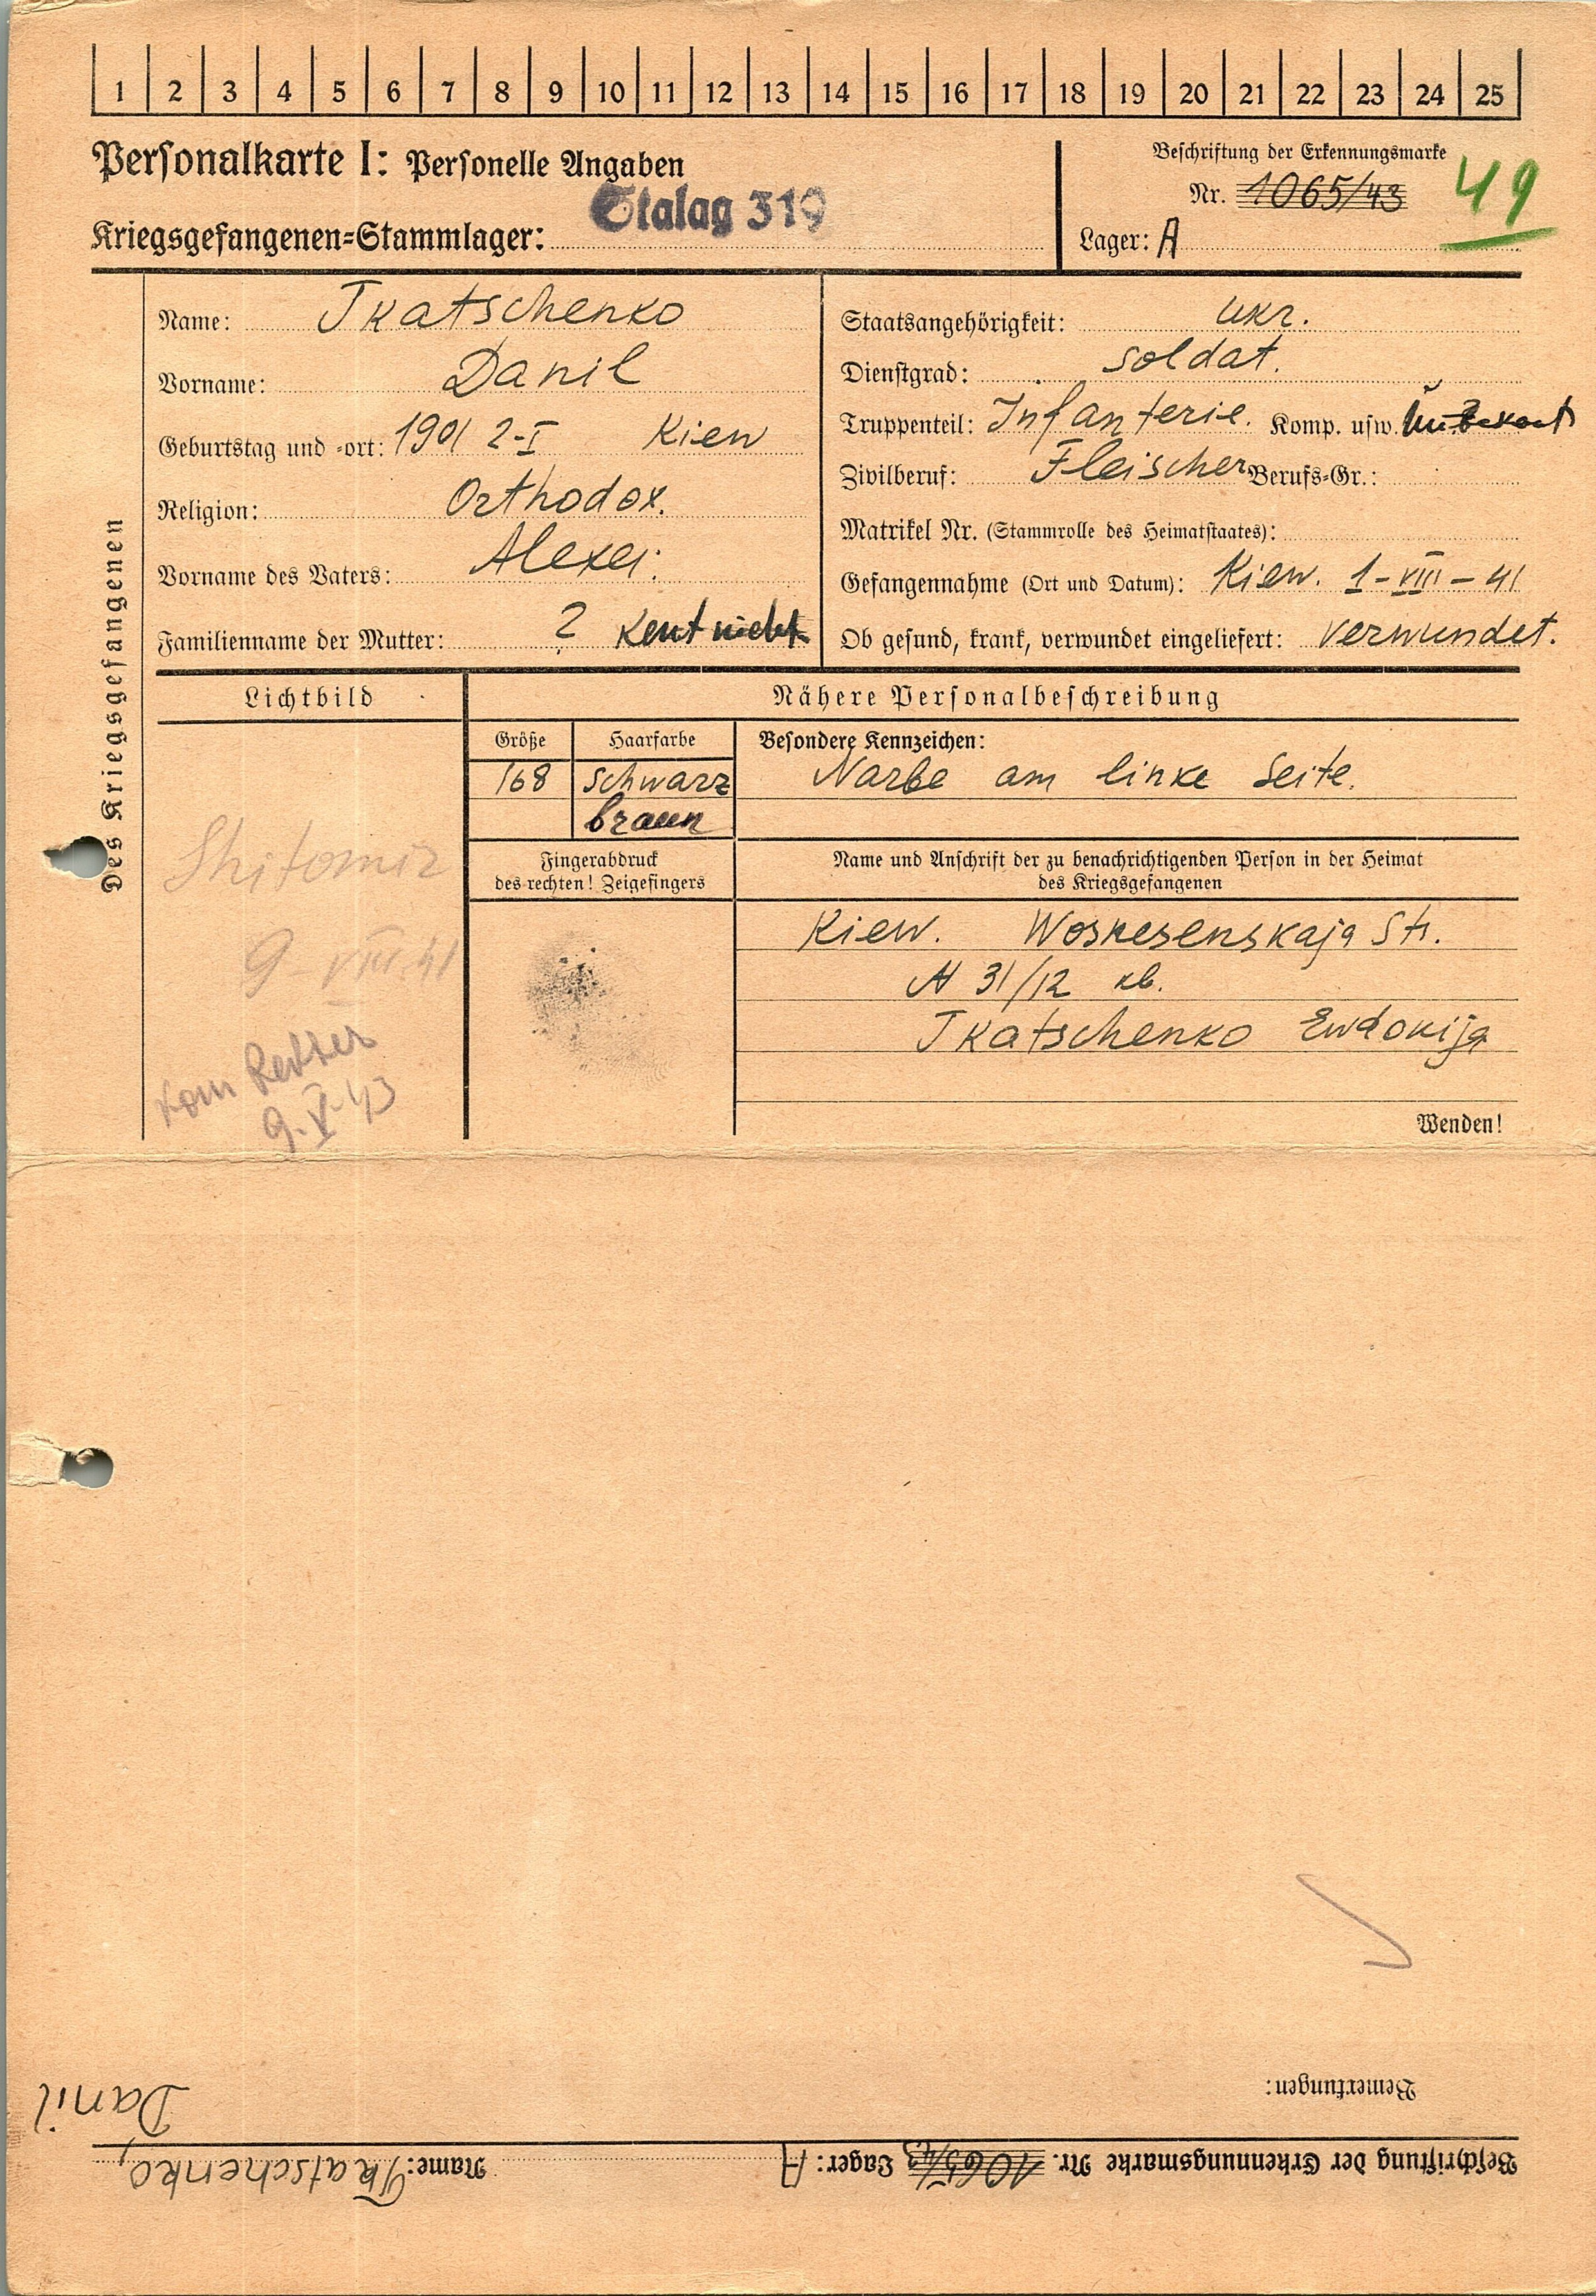 1 2 3 4 5 6 7 8 9 10 11 12 13 14 15 16 17 18 19 20 21 22 23 24 25
Personalkarte I: Personelle Angaben
Stalag 319
Kriegsgefangenen-Stammlager:
Beschriftung der Erkennungsmarke
Nr. 1065/43 49
Lager: A
Des Kriegsgefangenen
Name: Tkatschenko
Vorname: Danil
Geburtstag und -ort: 1901 2-I Kiew
Religion: Orthodox.
Vorname des Vaters: Alexei.
Familienname der Mutter: ? Kent nicht
Staatsangehörigkeit: ukr.
Dienstgrad: soldat.
Truppenteil: Infanterie. Komp. usw.
Zivilberuf: Fleischer Berufs-Gr.:
Matrikel Nr. (Stammrolle des Heimatstaates):
Gefangennahme (Ort und Datum): Kiew. 1-VIII-41
Ob gesund, krank, verwundet eingeliefert: verwundet.
Lichtbild
Shitomir
9 VIII.41
vom
9.V.43
Nähere Personalbeschreibung
Größe Haarfarbe Besondere Kennzeichen:
168 schwarz Narbe am linke Seite.
braun
Fingerabdruck
des rechten! Zeigefingers
Name und Anschrift der zu benachrichtigenden Person in der Heimat
des Kriegsgefangenen
Kiew. Woskresenskaja Str.
N 31/12 kb.
Tkatschenko Ewdokija
Wenden!
Bemerkungen:
Beschriftung der Erkennungsmarke Nr. 1065/43 Lager: A Name: Tkatschenko,
Danil